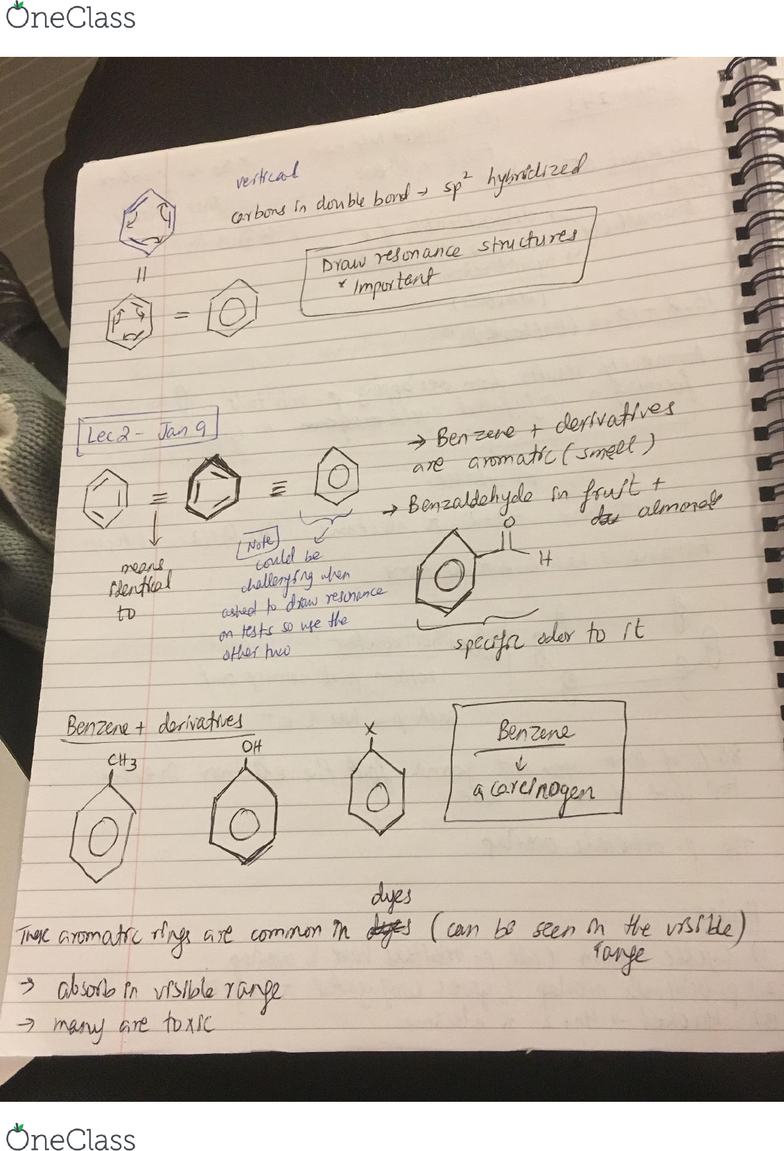 OneClass
vertical
carbons in double bond → sp² hybridized
Draw resonance structures
* Important
=
=
Lec 2 - Jan 9
→ Benzene + derivatives
are aromatic (smell)
→ Benzaldehyde in fruit +
almond
≡
≡
O
H
means
identical
to
Note
could be
challenging when
asked to draw resonance
on tests so use the
other two
specific odor to it
Benzene + derivatives
CH3
OH
X
Benzene
↓
a carcinogen
dyes
These aromatic rings are common in dyes (can be seen in the visible)
range
→ absorb in visible range
→ many are toxic
OneClass